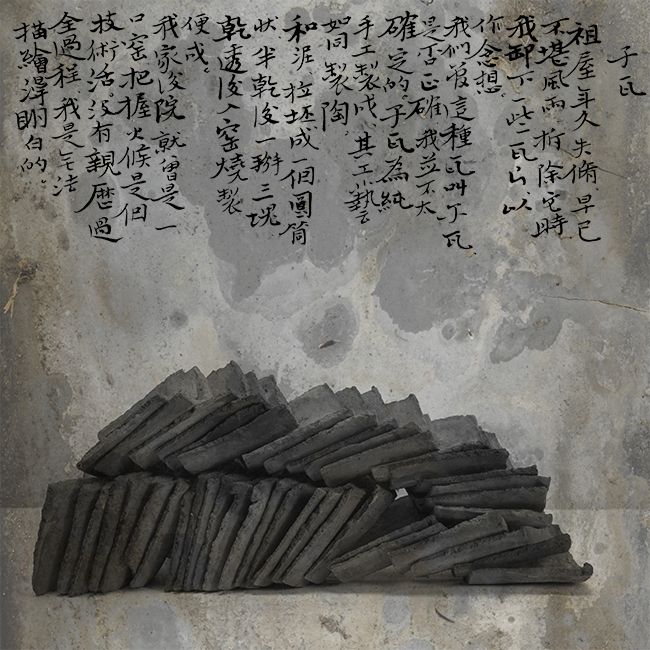 子瓦
祖屋年久失脩早已
不堪風雨拆除它時
我卸下一些瓦片以
作念想
我們管這種瓦叫子瓦
是否正確我並不太
確定的子瓦為純
手工製成其工藝
如同製陶
和泥拉坯成一個圓筒
狀半乾後一掰三塊
乾透後入窯燒製
便成。
我家後院就曾是一
口窑把握火候是個
技術活没有親歷過
全過程我是无法
描繪淂明白的。